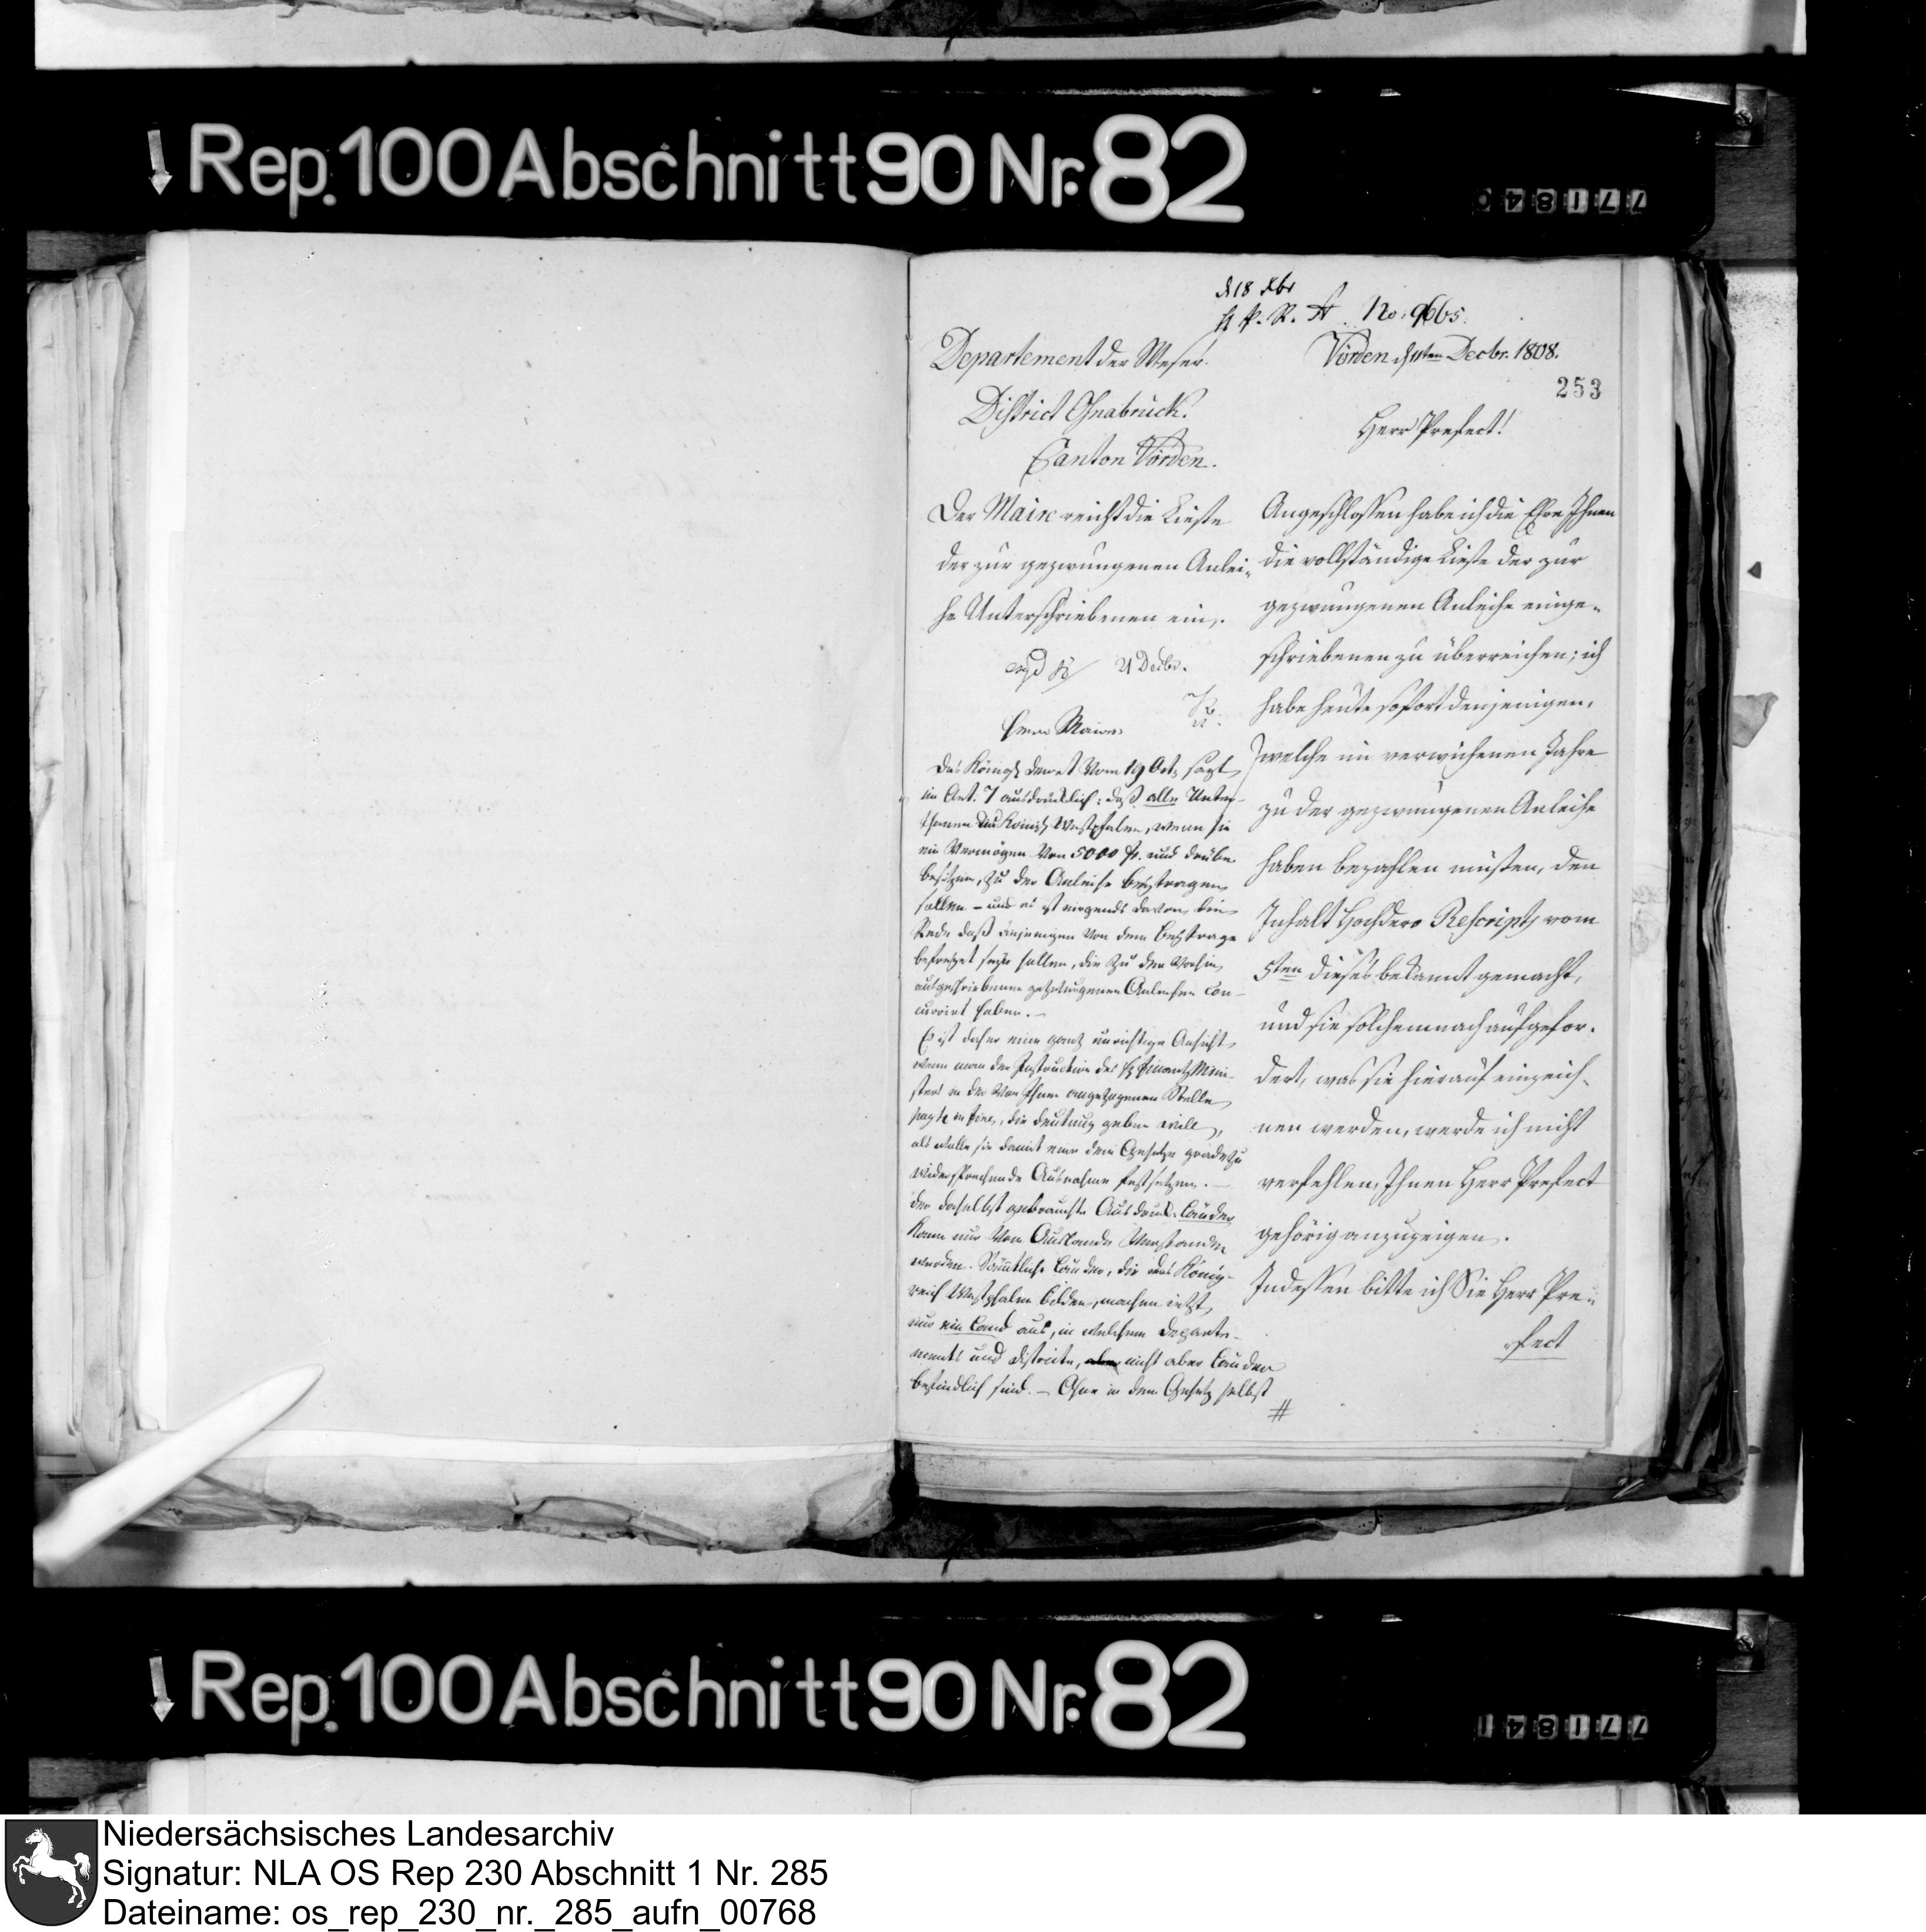 Rep. 100 Abschnitt 90 Nr. 82
771840
d 18 Xbr
No. 9665.
Departement der Weser.
District Osnabrück.
Canton Vörden.
Vörden d 11ten Decbr. 1808.
253
Herr Prefect!
Der Maire reicht die Lieste
der zur gezwungenen Anlei-
he Unterschriebenen ein.
21 Decbr.
Herrn Maire
Das Königl Decret vom 19 Oct. sagt
im Art. 7 ausdrücklich: daß alle Unter-
thanen des Königr Westphalen, wenn sie
ein Vermögen von 5000 fr. und drüber
besitzen, zu der Anleihe beytragen
sollen – und es ist nirgends davon die
Rede daß diejenigen von dem Beytrage
befreyet seyn sollen, die zu der vorhin
ausgeschriebenen gezwungenen Anleihe con-
currirt haben. –
Es ist daher eine ganz unrichtige Ansicht
wenn man der Instruction des H Finanz Mini-
sters in der von Ihnen angezogenen Stelle
in fine, die Deutung geben will,
als wolle sie damit eine dem Gesetze gradezu
widersprechende Ausnahme festsetzen. –
Der daselbst gebrauchte Ausdruck: Länder
kann nur vom Auslande verstanden
werden. Sämtliche Länder, die das König-
reich Westphalen bilden, machen jetzt
nur ein Land aus, in welchem Departe-
ments und Districte, aber nicht aber Länder
befindlich sind. – Ohne in dem Gesetz selbst
#
Angeschlossen habe ich die Ehre Ihnen
die vollständige Lieste der zur
gezwungenen Anleihe einge-
schriebenen zu überreichen; ich
habe heute sofort denjenigen,
welche im verwichenen Jahre
zu der gezwungenen Anleihe
haben bezahlen müßen, den
Inhalt Hochdero Rescripts vom
5ten dieses bekannt gemacht,
und sie solchemnach aufgefor-
dert, was sie hierauf einreich-
nen werden, werde ich nicht
verfehlen, Ihnen Herr Prefect
gehörig anzuzeigen.
Indessen bitte ich Sie Herr Pre-
fect
Rep. 100 Abschnitt 90 Nr. 82
771841
Niedersächsisches Landesarchiv
Signatur: NLA OS Rep 230 Abschnitt 1 Nr. 285
Dateiname: os_rep_230_nr._285_aufn_00768